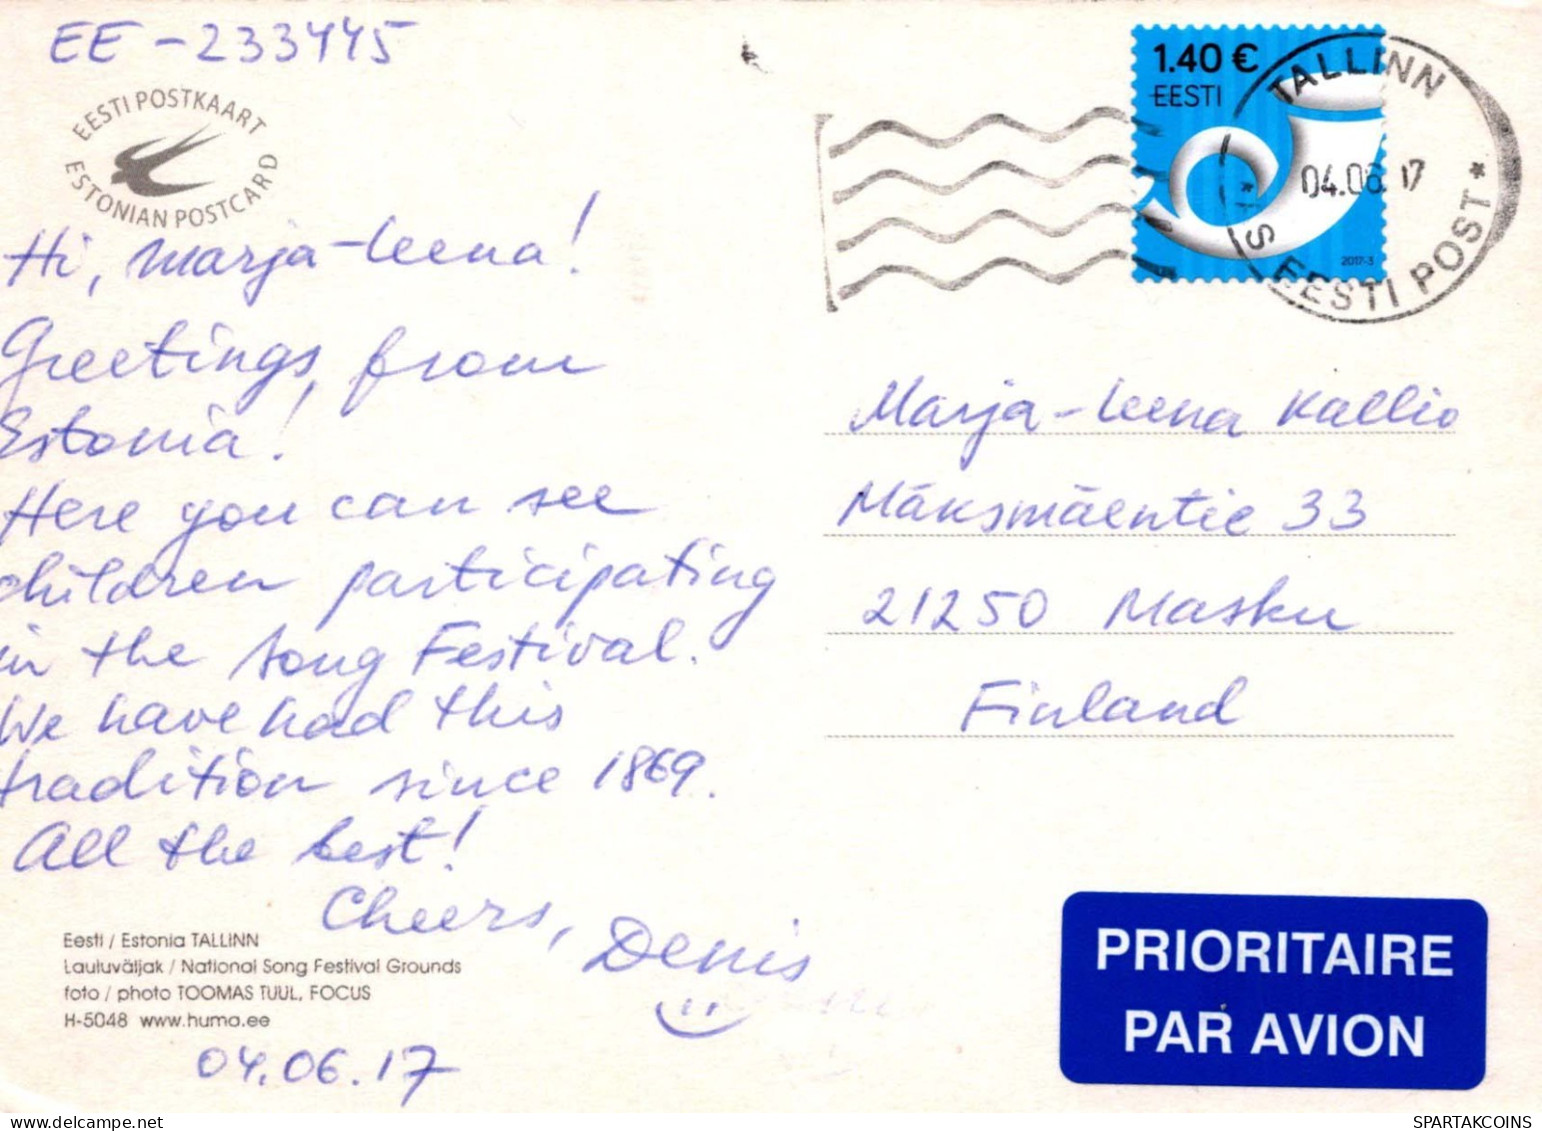 EE-233445
EESTI POSTKAART
ESTONIAN POSTCARD
1.40 €
EESTI
2017-3
TALLINN
04.06.17
* EESTI POST *
Hi, Marja-Leena!
Greetings, from
Estonia!
Here you can see
children participating
in the Song Festival.
We have had this
tradition since 1869.
All the best!
Cheers, Denis
04.06.17
Marja-Leena Kallio
Mäksmäentie 33
21250 Masku
Finland
Eesti / Estonia TALLINN
Lauluväljak / National Song Festival Grounds
foto / photo TOOMAS TUUL, FOCUS
H-5048 www.huma.ee
PRIORITAIRE
PAR AVION
SPARTAKCOINS